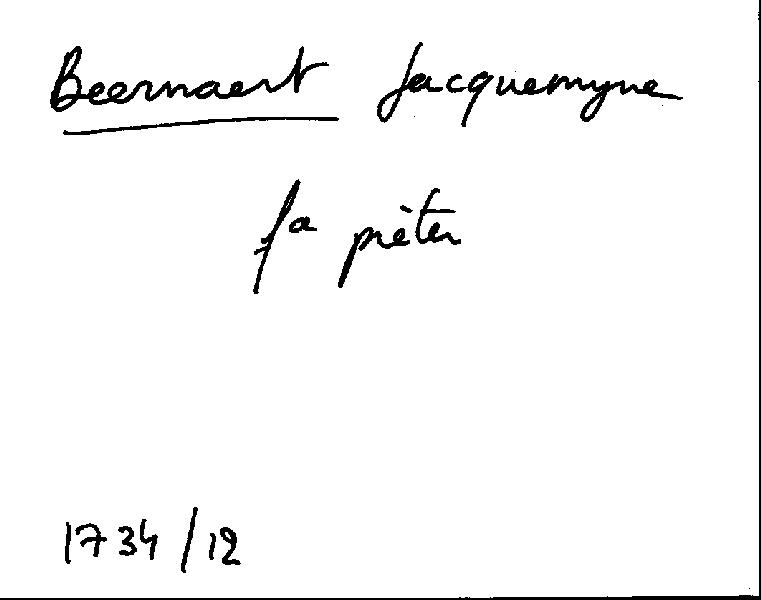 Beernaert Jacquemyne
fa prèter
1734/12